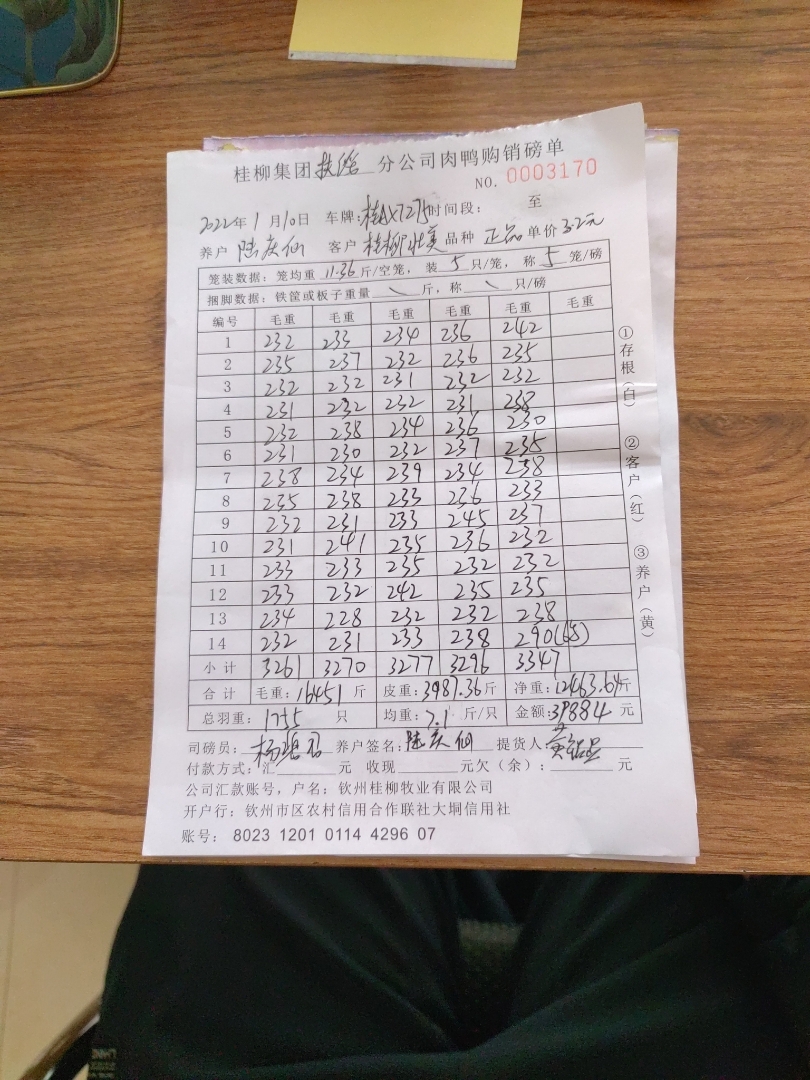 桂柳集团扶绥分公司肉鸭购销磅单
NO. 0003170
2022年1月10日 车牌:桂AX7275时间段: 至
养户 陆庆仙 客户 桂柳 品种 正品 单价 3.2元
笼装数据:笼均重 11.36 斤/空笼, 装 5 只/笼, 称 5 笼/磅
捆脚数据:铁筐或板子重量 \ 斤,称 \ 只/磅
编号 毛重 毛重 毛重 毛重 毛重 毛重
1 232 233 234 236 242
2 235 237 232 236 235
3 232 232 231 232 232
4 231 232 232 231 238
5 232 238 234 236 230
6 231 230 232 237 235
7 238 234 239 234 238
8 235 238 233 236 233
9 232 231 233 245 237
10 231 241 235 236 232
11 233 233 235 232 232
12 233 232 242 235 235
13 234 228 232 232 238
14 232 231 233 238 290(6笼)
小计 3261 3270 3277 3296 3347
合计 毛重:16451 斤 皮重:3987.36斤 净重:12463.64斤
总羽重: 1755 只 均重:7.1 斤/只 金额:39884 元
司磅员: 杨 养户签名:陆庆仙 提货人:黄
付款方式:汇 元 收现 元欠(余): 元
公司汇款账号,户名:钦州桂柳牧业有限公司
开户行:钦州市区农村信用合作联社大垌信用社
账号: 8023 1201 0114 4296 07
①存根(白) ②客户(红) ③养户(黄)